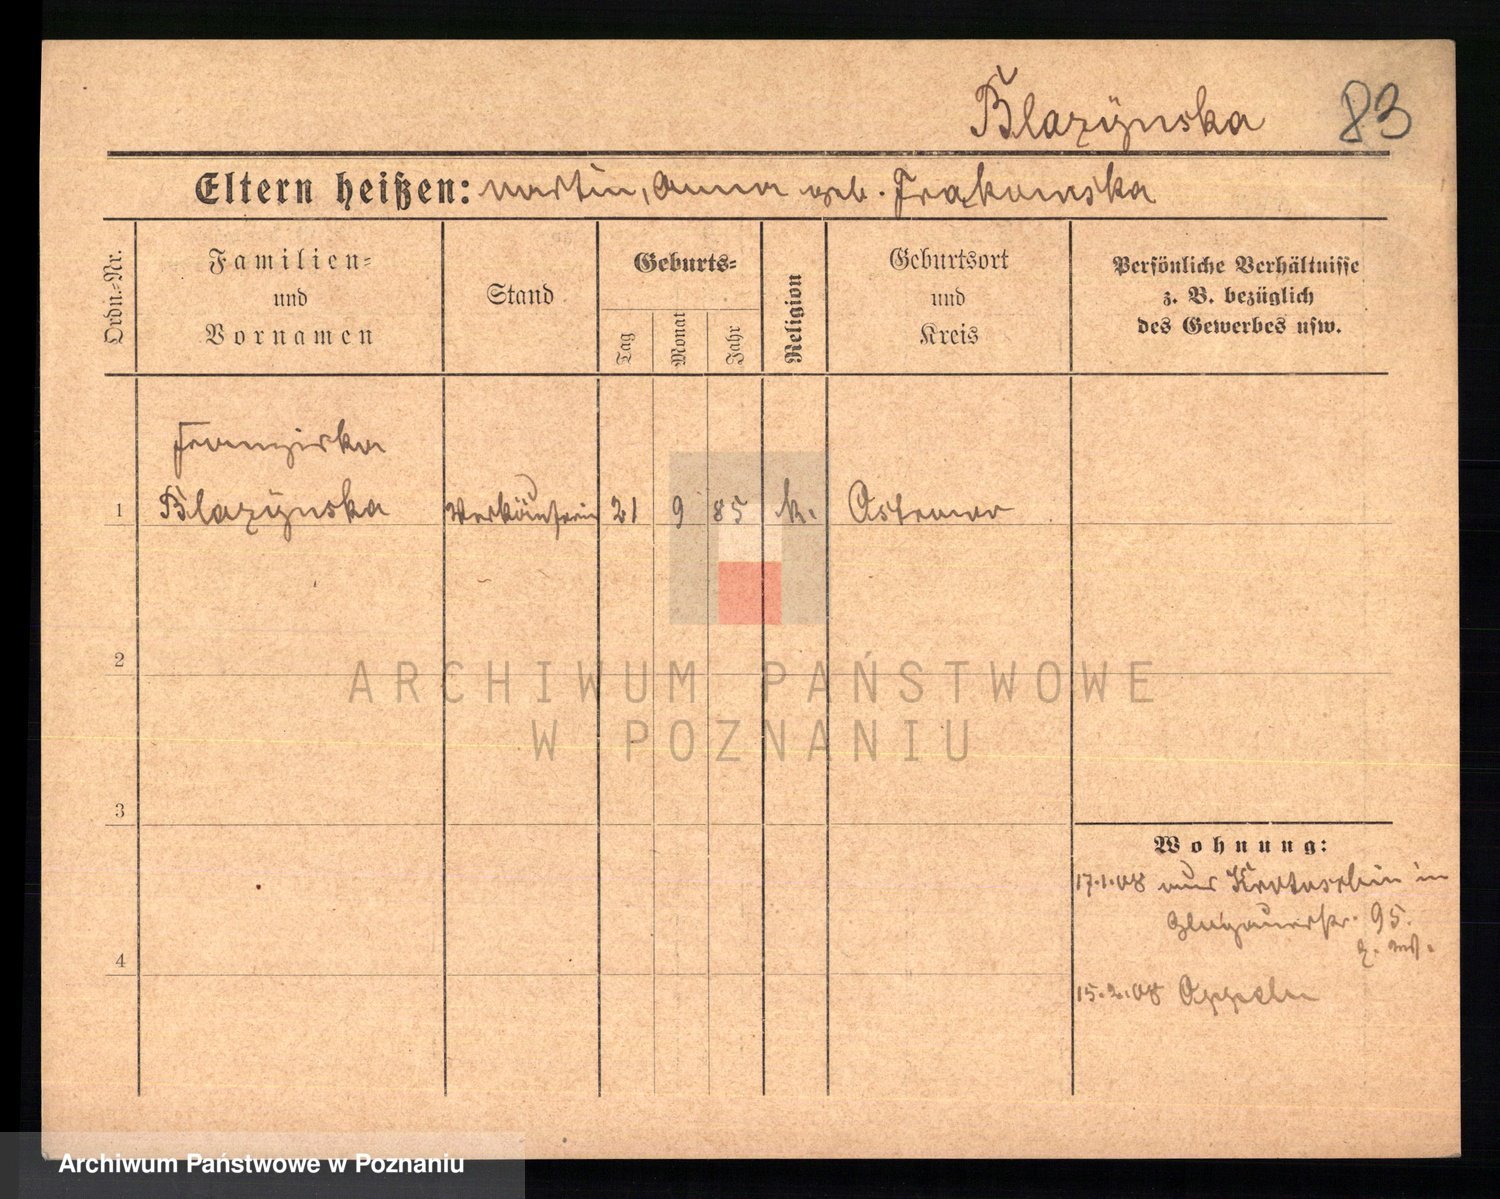 Blazÿnska 83
Eltern heißen: Martin, Anna geb. Frąkowska
Ordn.-Nr.
Familien-
und
Vornamen
Stand
Geburts-
Tag
Monat
Jahr
Religion
Geburtsort
und
Kreis
Persönliche Verhältnisse
z. B. bezüglich
des Gewerbes usw.
Franziska
1 Blazÿnska Verkäuferin 21 9 85 k. Ostrowo
2
ARCHIWUM PAŃSTWOWE
W POZNANIU
3
Wohnung:
17.1.08 aus Krotoschin in
Glogauerstr. 95.
4
15.2.08 Oppeln
Archiwum Państwowe w Poznaniu